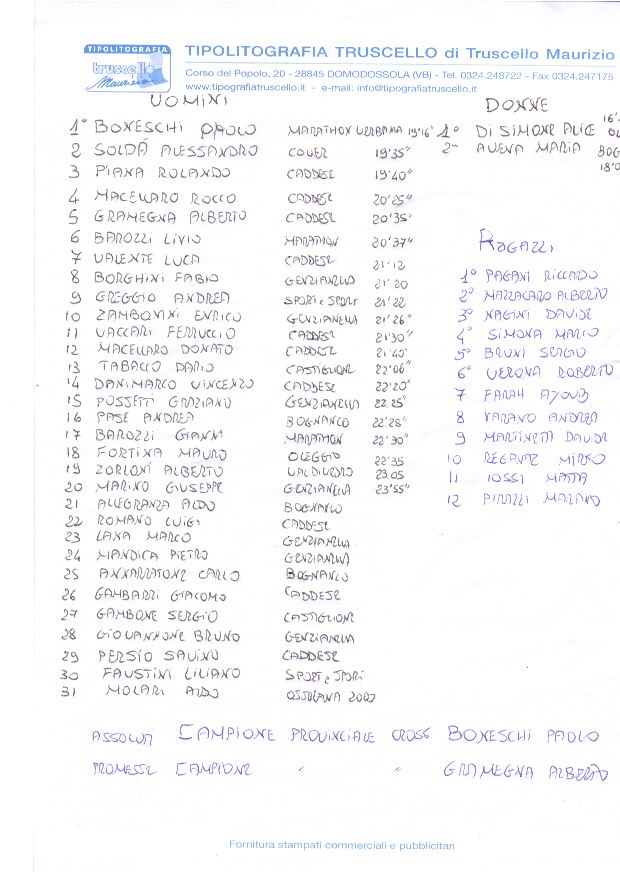 TIPOLITOGRAFIA
truscello
Maurizio
TIPOLITOGRAFIA TRUSCELLO di Truscello Maurizio
Corso del Popolo, 20 - 28845 DOMODOSSOLA (VB) - Tel. 0324.248722 - Fax 0324.247175
www.tipografiatruscello.it - e-mail: info@tipografiatruscello.it
UOMINI
1° BONESCHI PAOLO MARATHON VERBANIA 19'16"
2 SOLDÁ ALESSANDRO COVER 19'35"
3 PIANA ROLANDO CADDESE 19'40"
4 MACELLARO ROCCO CADDESE 20'25"
5 GRAMEGNA ALBERTO CADDESE 20'35"
6 BAROZZI LIVIO MARATHON 20'37"
7 VALENTE LUCA CADDESE 21'12
8 BORGHINI FABIO GENZIANELLA 21'20
9 GREGGIO ANDREA SPORT e SPORT 21'22
10 ZAMBONINI ENRICO GENZIANELLA 21'26"
11 VACCARI FERRUCCIO CADDESE 21'30"
12 MACELLARO DONATO CADDESE 21'40'
13 TABACCO DARIO CASTIGLIONE 22'06"
14 DANIMARCO VINCENZO CADDESE 22'20'
15 POSSETTI GRAZIANO GENZIANELLA 22.25"
16 PASE ANDREA BOGNANCO 22'28"
17 BAROZZI GIANNI MARATHON 22'30"
18 FORTINA MAURO OLEGGIO 22'35
19 ZORLONI ALBERTO VALDIVEDRO 23.05
20 MARINO GIUSEPPE GENZIANELLA 23'55"
21 ALLEGRANZA ALDO BOGNANCO
22 ROMANO LUIGI CADDESE
23 LANA MARCO GENZIANELLA
24 MANDICA PIETRO GENZIANELLA
25 ANNARRATONE CARLO BOGNANCO
26 GAMBARRI GIACOMO CADDESE
27 GAMBONE SERGIO CASTIGLIONE
28 GIOVANNONE BRUNO GENZIANELLA
29 PERSIO SAVINO CADDESE
30 FAUSTINI LILIANO SPORT e SPORT
31 MOLARI ALDO OSSOLANA 2000
DONNE
1° DI SIMONE ALICE 16'
2^ AVENA MARIA BOG
18'0
RAGAZZI
1° PAGANI RICCARDO
2° MAZZACARO ALBERTO
3° NAGINI DAVIDE
4° SIMONA MARIO
5° BRUNI SERGIO
6° VERONA ROBERTO
7 FARAH AYOUB
8 VARANO ANDREA
9 MARTINETTI DAVIDE
10 MIRKO
11 IOSSI MATTIA
12 PIRAZZI
ASSOLUTI CAMPIONE PROVINCIALE CROSS BONESCHI PAOLO
PROMESSE CAMPIONE " " GRAMEGNA ALBERTO
Fornitura stampati commerciali e pubblicitari